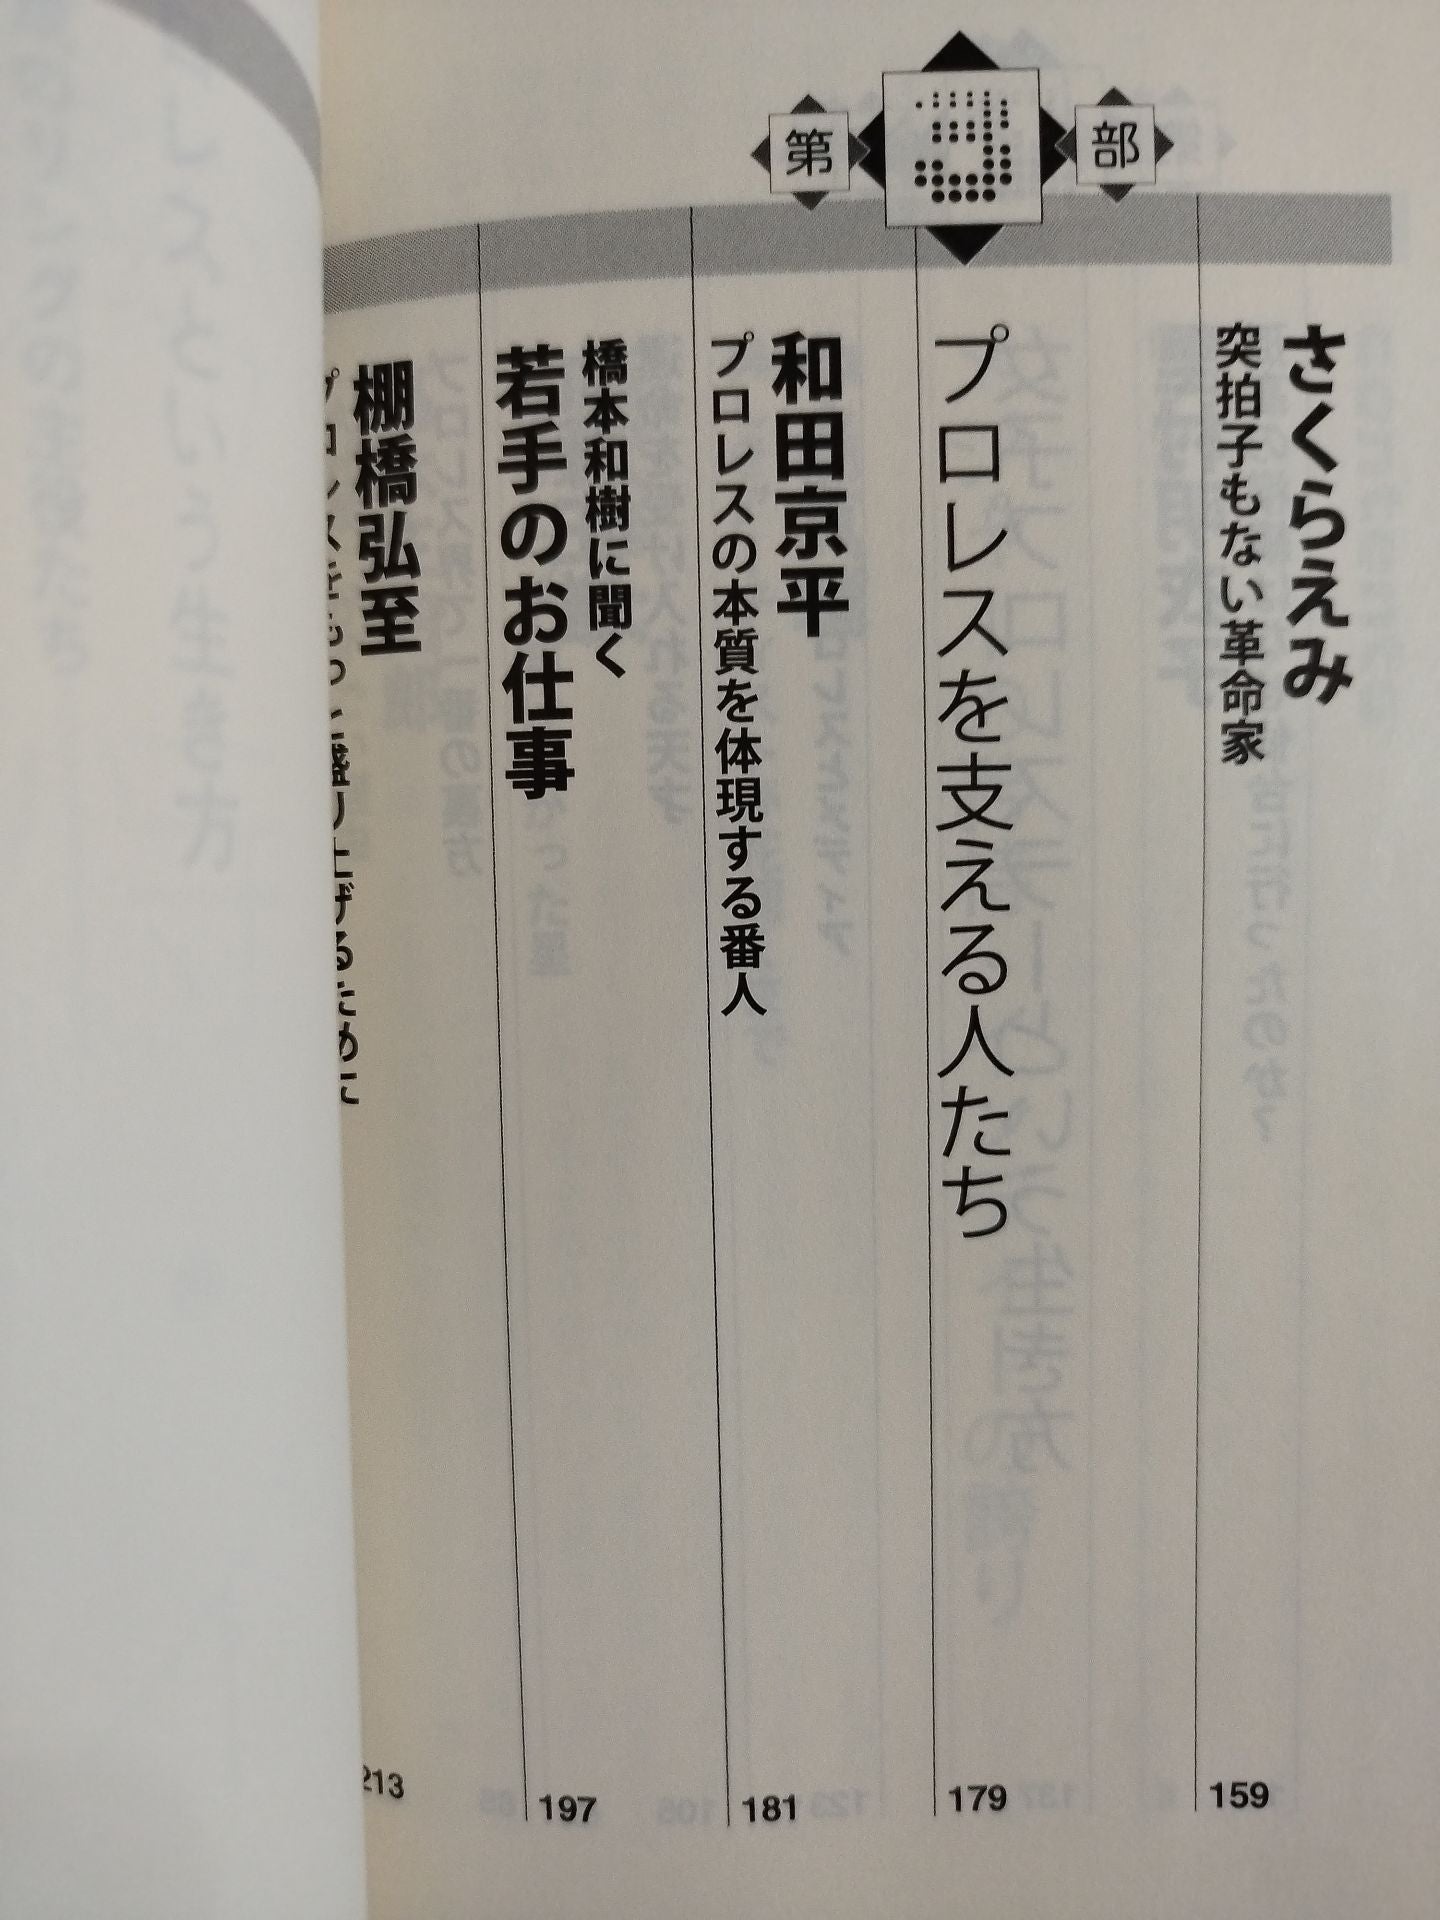 さくらえみ
突拍子もない革命家
159
第3部
プロレスを支える人たち
179
和田京平
プロレスの本質を体現する番人
181
橋本和樹に聞く
若手のお仕事
197
棚橋弘至
プロレスをもっと盛り上げるために
213